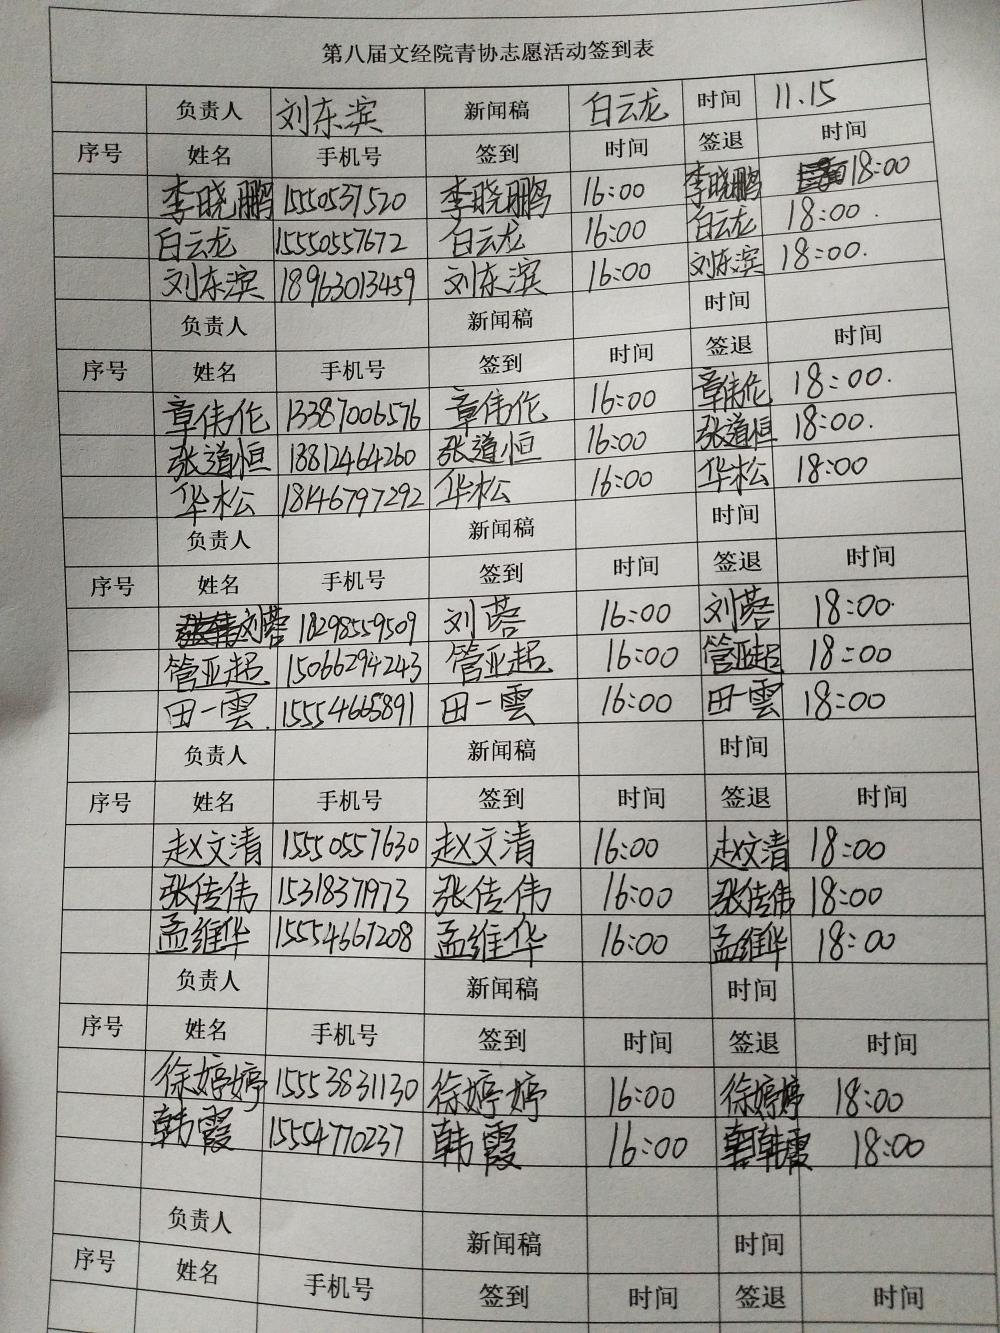 第八届文经院青协志愿活动签到表
负责人 刘东滨 新闻稿 白云龙 时间 11.15
序号 姓名 手机号 签到 时间 签退 时间
李晓鹏 15550537520 李晓鹏 16:00 李晓鹏 18:00
白云龙 15550557672 白云龙 16:00 白云龙 18:00.
刘东滨 18963013459 刘东滨 16:00 刘东滨 18:00.
负责人 新闻稿 时间
序号 姓名 手机号 签到 时间 签退 时间
章伟伦 13387006576 章伟伦 16:00 章伟伦 18:00.
张道恒 18812464260 张道恒 16:00 张道恒 18:00.
华松 18146797292 华松 16:00 华松 18:00
负责人 新闻稿 时间
序号 姓名 手机号 签到 时间 签退 时间
刘蓉 18298559509 刘蓉 16:00 刘蓉 18:00.
管亚起 15066294243 管亚起 16:00 管亚起 18:00
田一雲. 15554665891 田一雲 16:00 田一雲 18:00
负责人 新闻稿 时间
序号 姓名 手机号 签到 时间 签退 时间
赵文清 15550557630 赵文清 16:00 赵文清 18:00
张传伟 15318371973 张传伟 16:00 张传伟 18:00
孟维华 15554661208 孟维华 16:00 孟维华 18:00
负责人 新闻稿 时间
序号 姓名 手机号 签到 时间 签退 时间
徐婷婷 15553831130 徐婷婷 16:00 徐婷婷 18:00
韩霞 15554770237 韩霞 16:00 韩霞 18:00
负责人 新闻稿 时间
序号 姓名 手机号 签到 时间 签退 时间